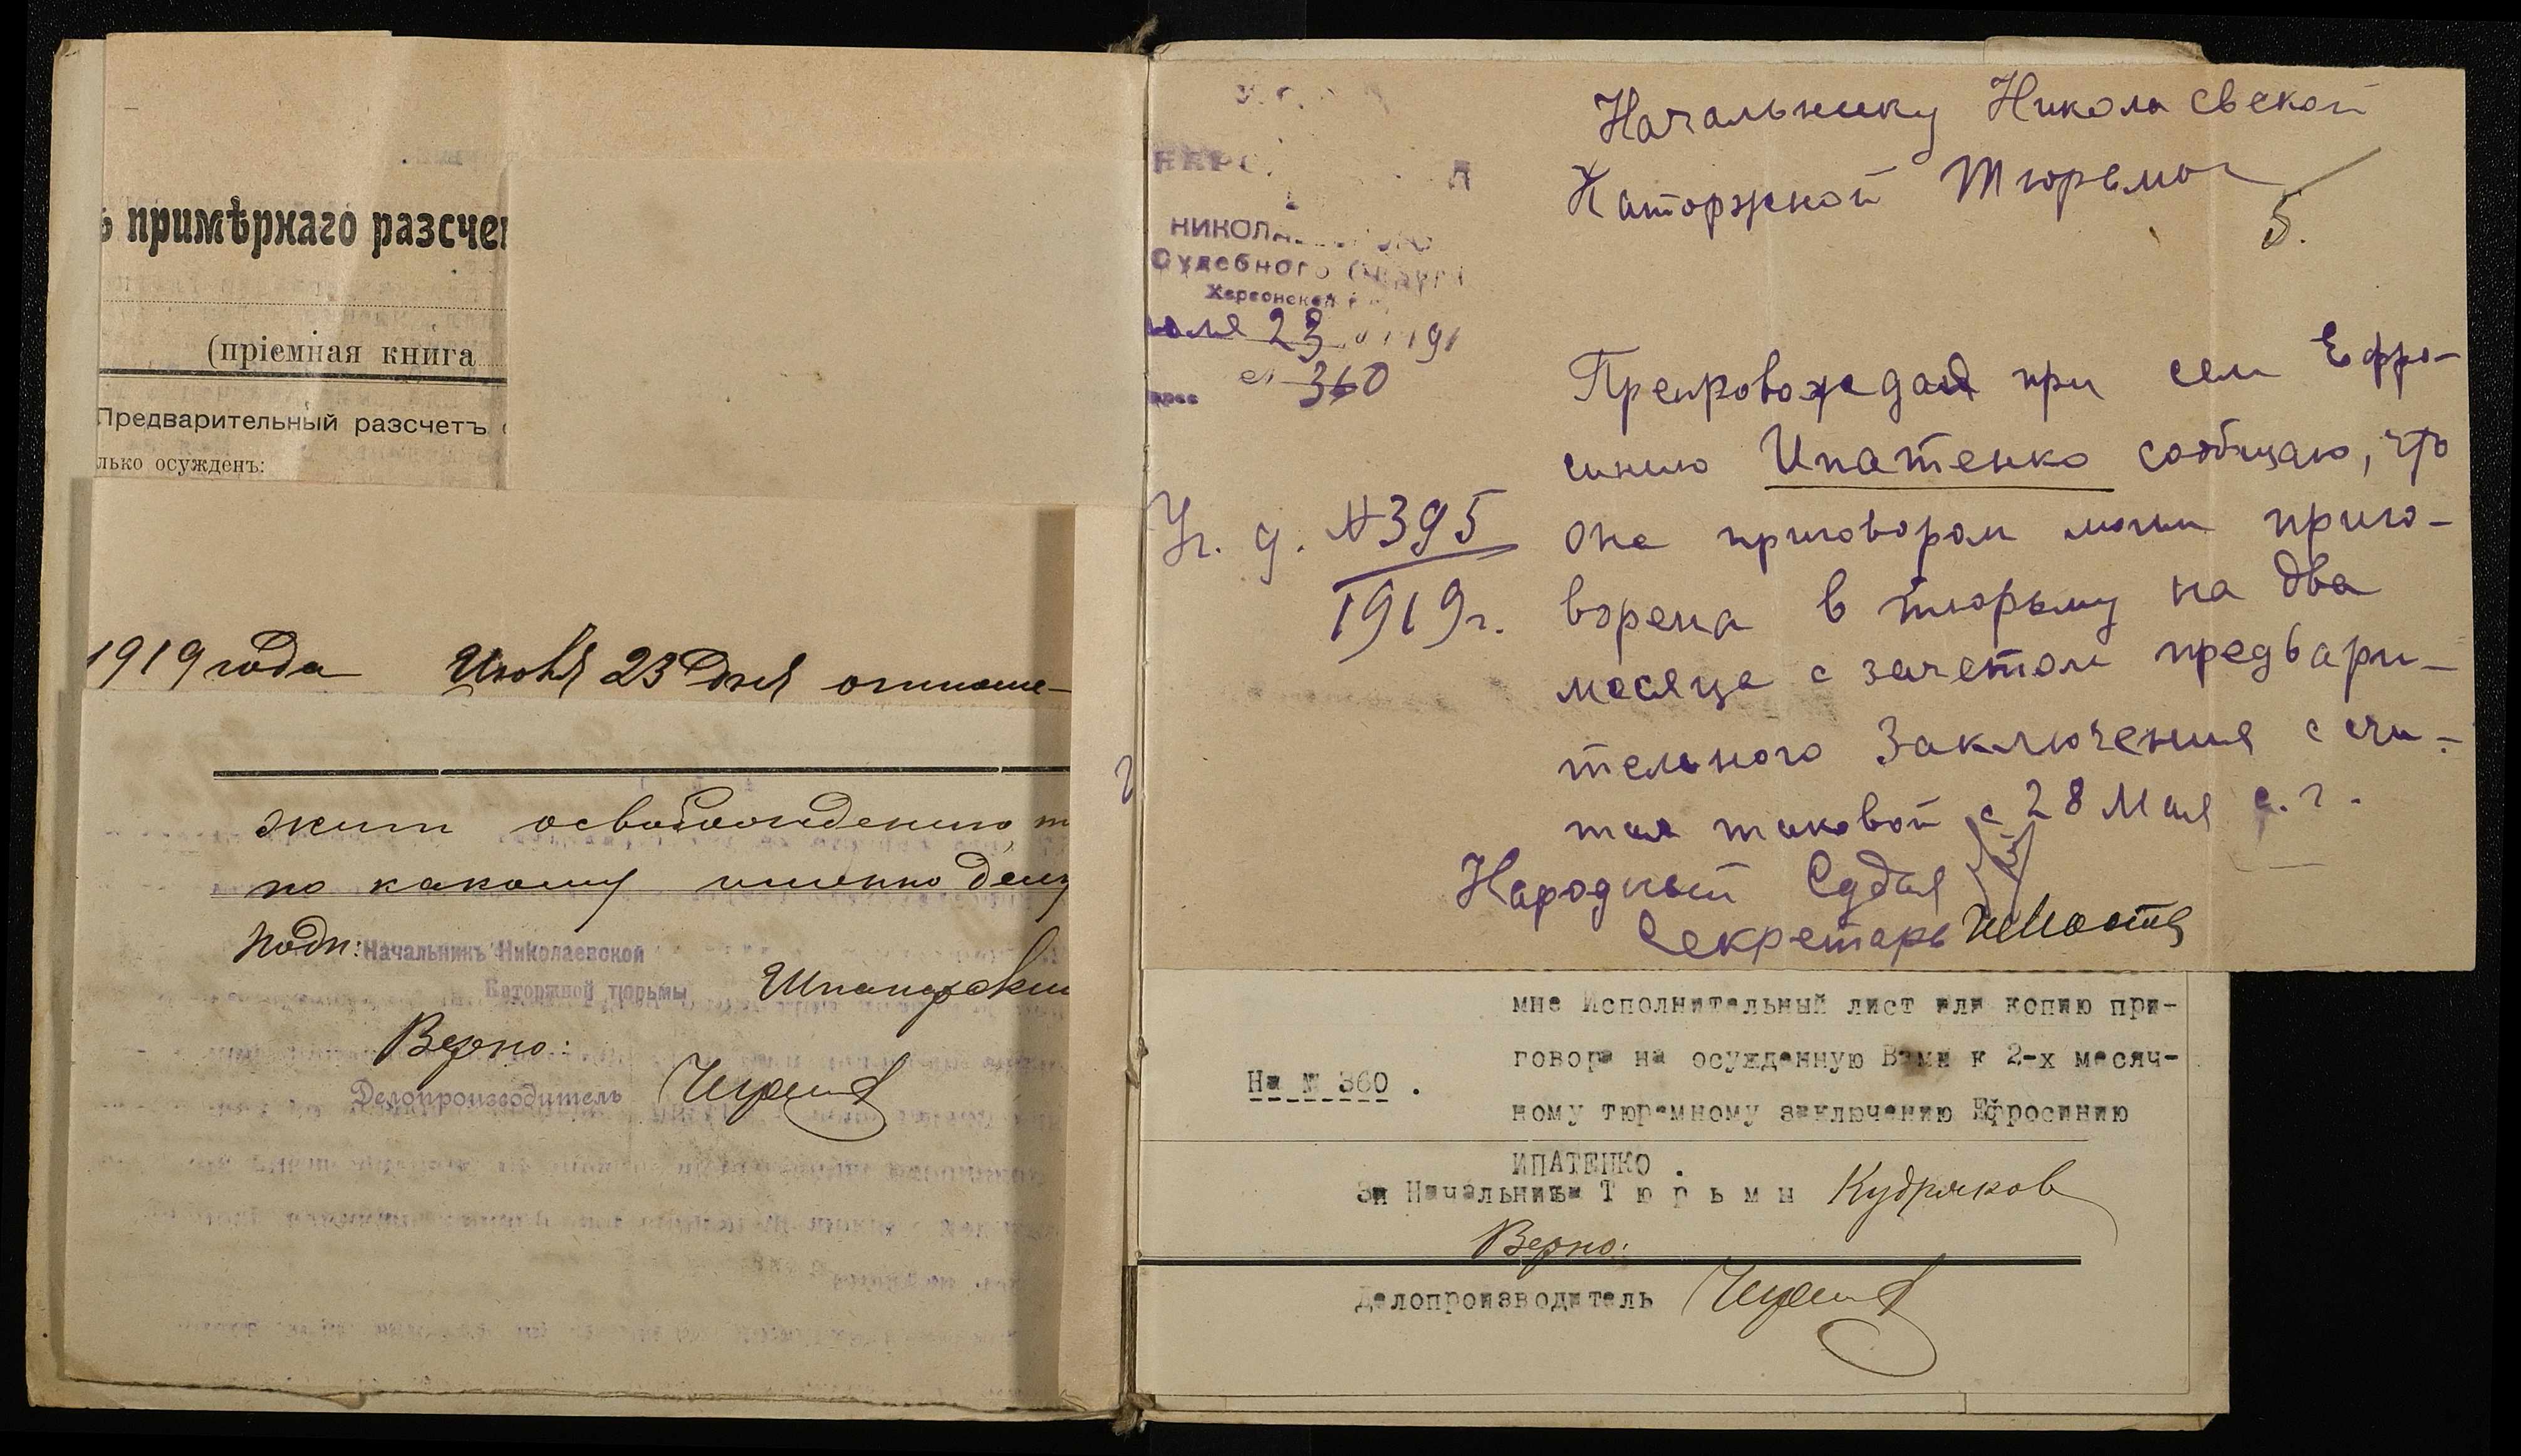 примѣрнаго разсчет
(пріемная книга
Предварительный разсчетъ
лько осужденъ:
1919 года Июня 23 дня отноше-
жит освобождению
по какому именно делу
Подп: Начальникъ Николаевской
Каторжной тюрьмы
Верно:
Делопроизводитель
НИКОЛА
Судебного
Херсонской
юля 23 191
№ 360
Уг. д. № 395
1919 г.
Начальнику Николаевской
Каторжной Тюрьмы
5.
Препровождая при сем Ефро-
синию Ипатенко сообщаю, что
она приговором моим приго-
ворена в тюрьму на два
месяца с зачетом предвари-
тельного заключения счи-
тая таковой с 28 Мая с. г.
Народный Судья
Секретарь
мне Исполнительный лист или копию при-
говора на осужденную Вами к 2-х месяч-
На № 360 .
ному тюремному заключению Ефросинию
ИПАТЕНКО .
За Начальника Тюрьмы Кудряков
Верно:
Делопроизводитель